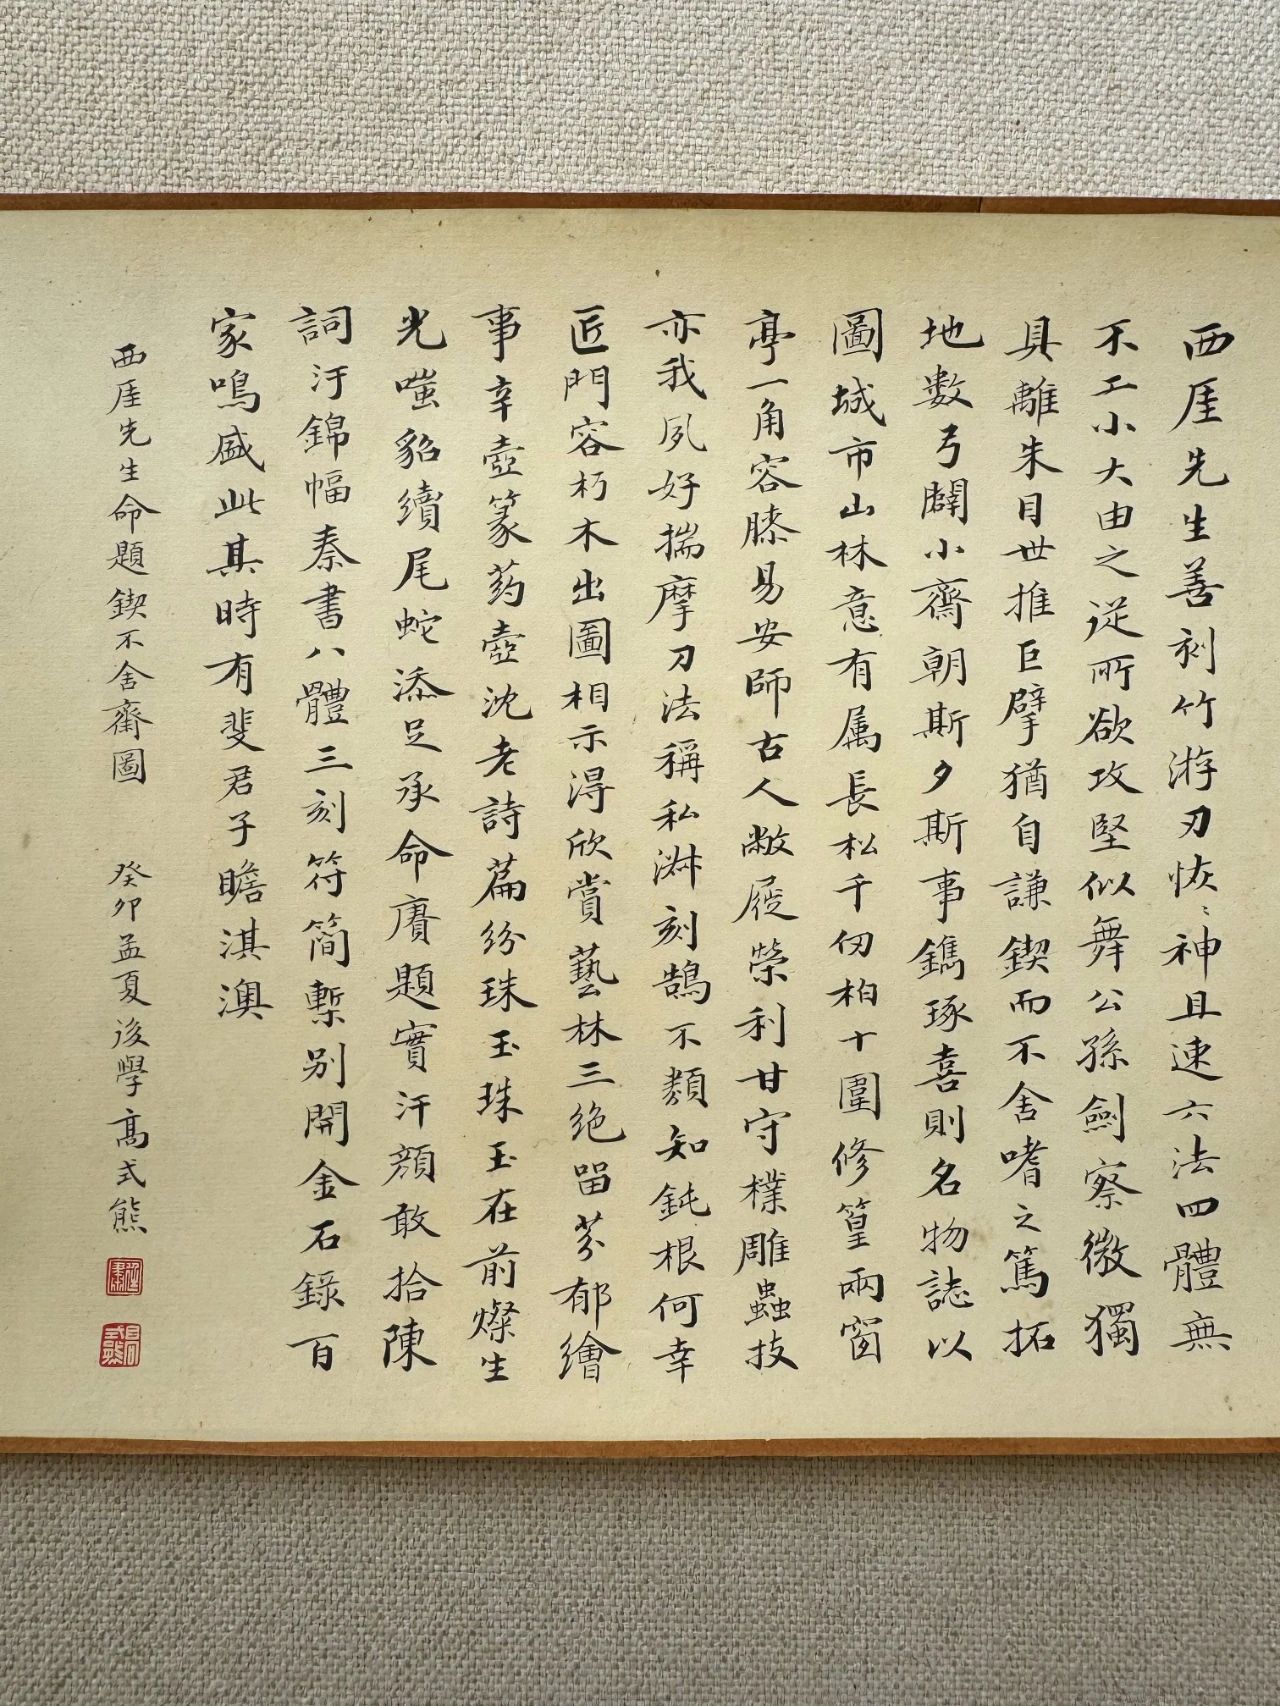 西厓先生善刻竹游刃恢〻神且速六法四體無
不工小大由之從所欲攻堅似舞公孫劍察微獨
具離朱目世推巨擘猶自謙鍥而不舍嗜之篤拓
地數弓闢小齋朝斯夕斯事鐫琢喜則名物誌以
圖城市山林意有属長松千仞柏十圍修篁兩窗
亭一角容膝易安師古人敝屣榮利甘守樸雕蟲技
亦我夙好揣摩刀法稱私淑刻鵠不類知鈍根何幸
匠門容朽木出圖相示得欣賞藝林三絶留芬郁繪
事辛壺篆药壺沈老詩篇紛珠玉珠玉在前燦生
光嗤貂續尾蛇添足承命賡題實汗顔敢拾陳
詞汙錦幅秦書八體三刻符簡槧别開金石錄百
家鳴盛此其時有斐君子瞻淇澳
西厓先生命題鍥不舍齋圖 癸卯孟夏後學髙式熊